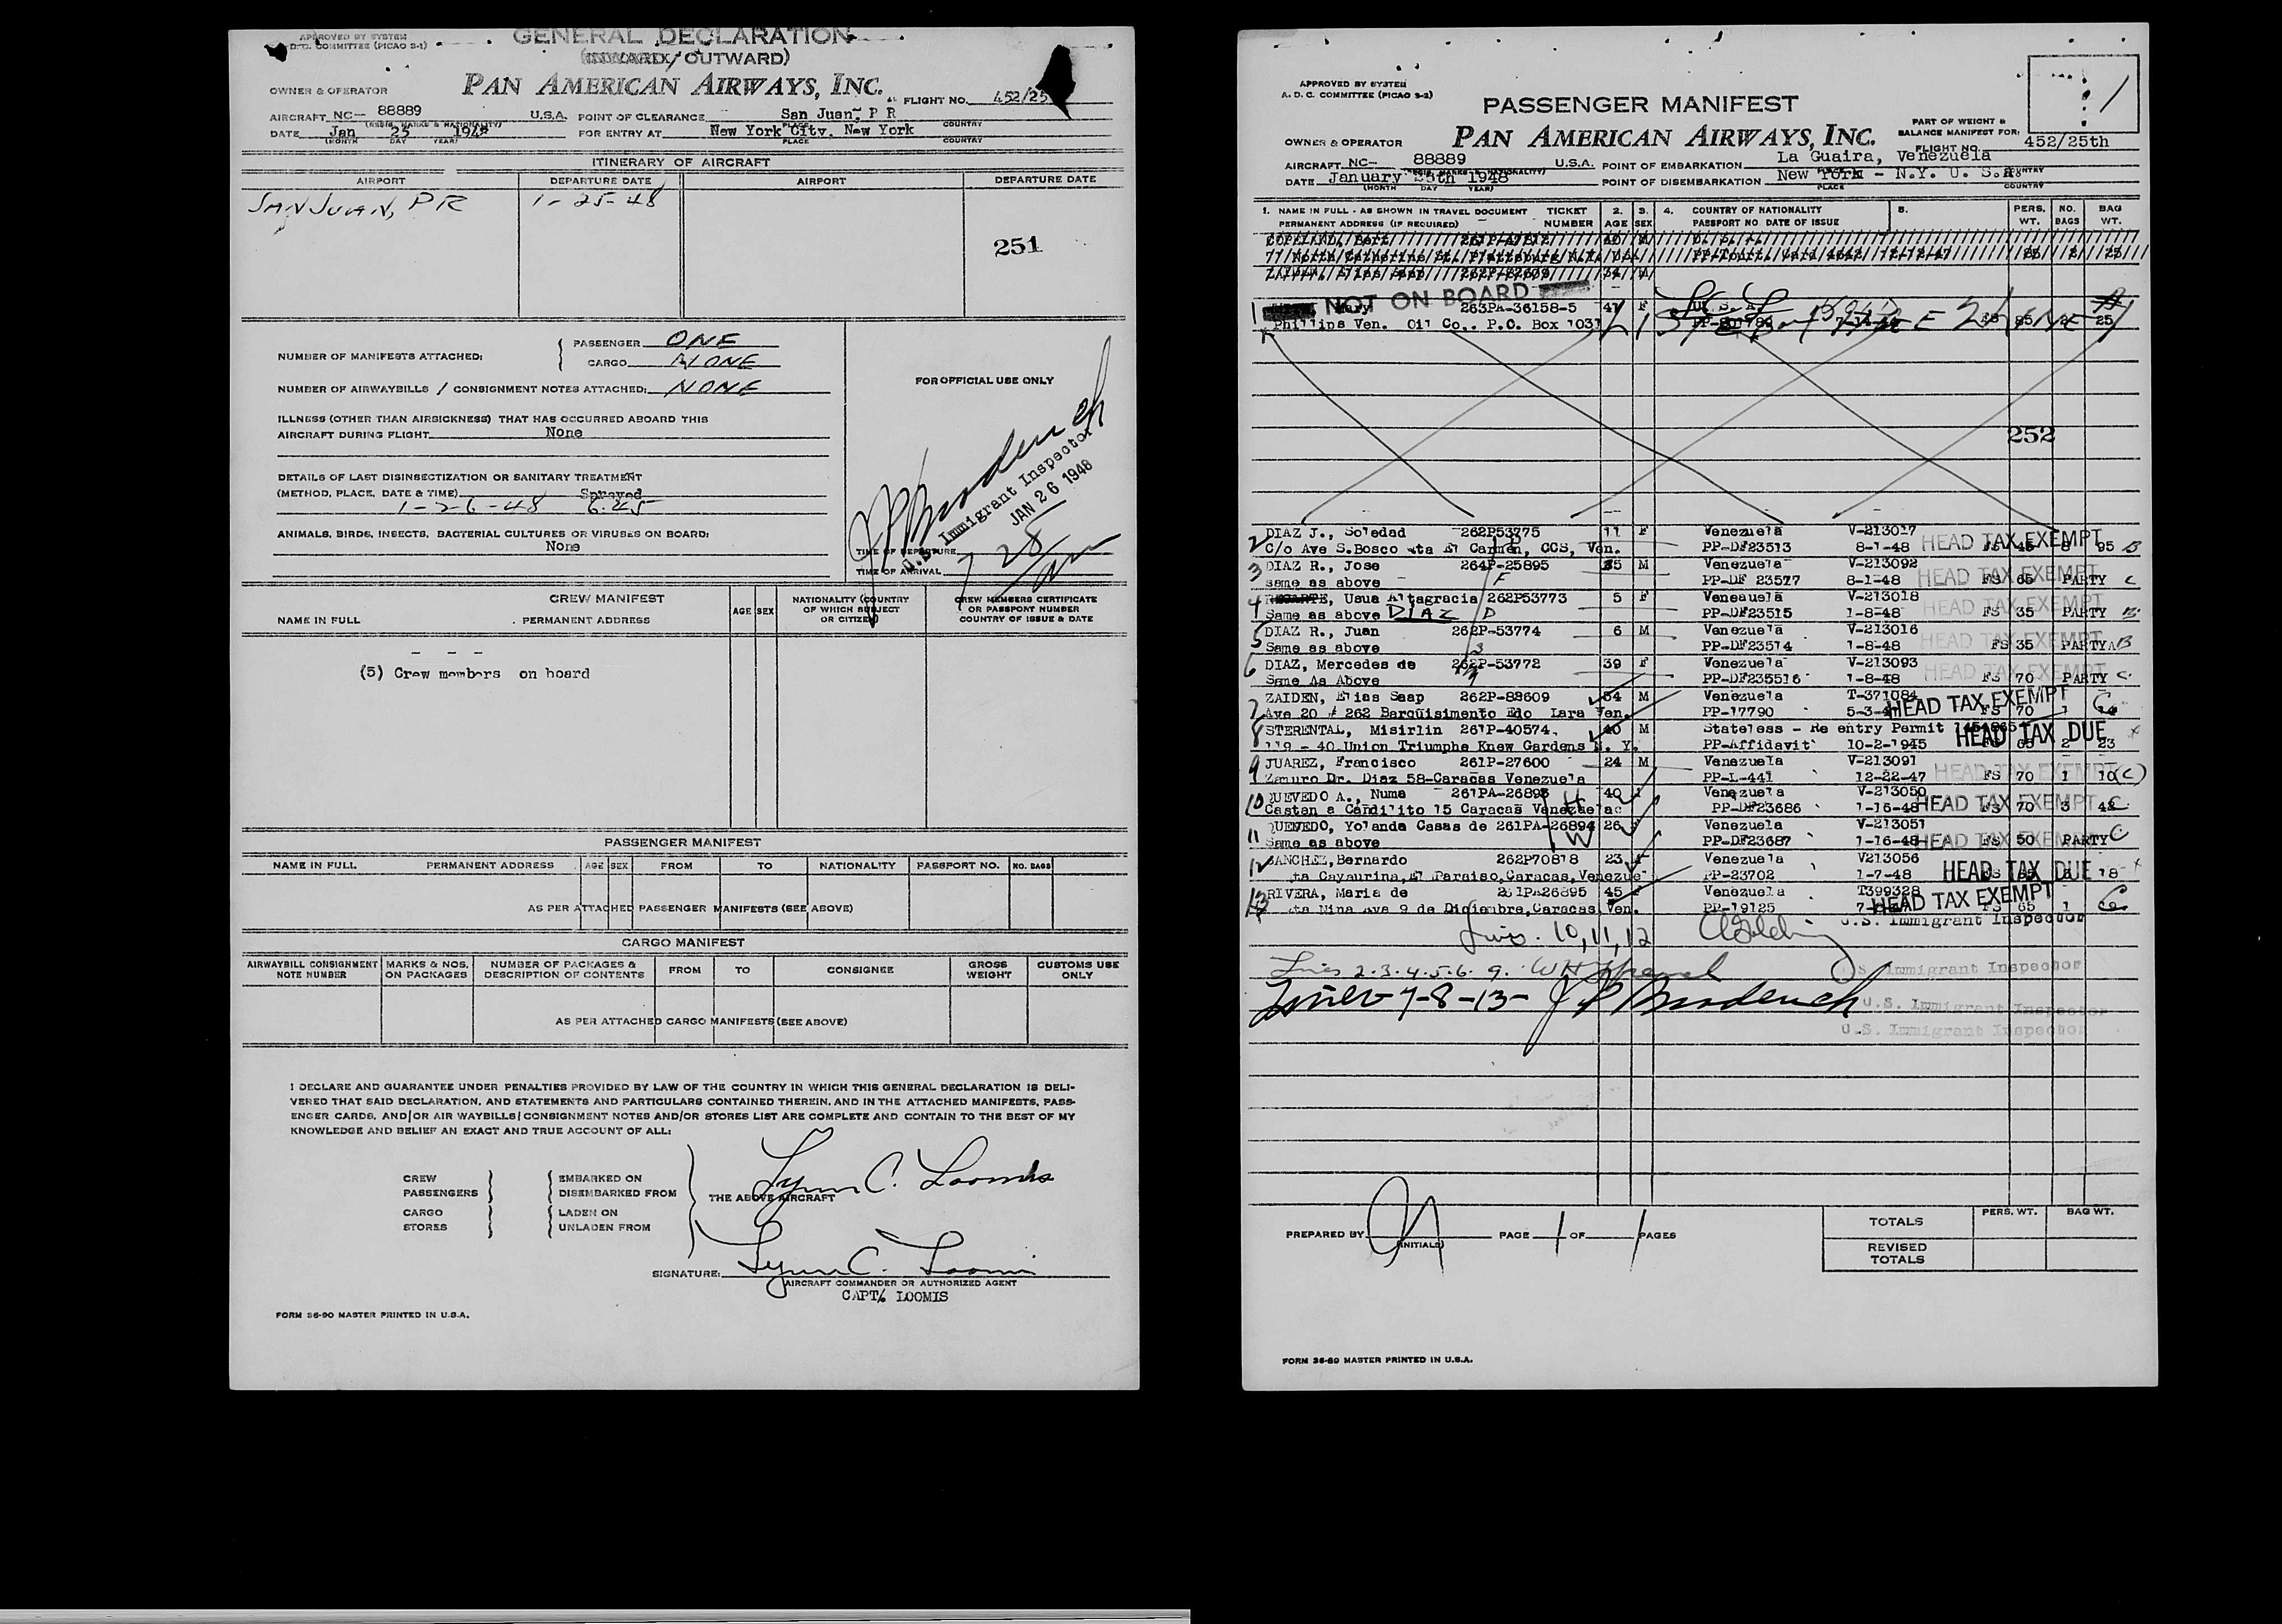 APPROVED BY SYSTEM
D.C. COMMITTEE (PICAO S-1)
GENERAL DECLARATION
(INWARD/OUTWARD)
PAN AMERICAN AIRWAYS, INC.
OWNER & OPERATOR
FLIGHT NO. 452/25
AIRCRAFT NC- 88889 U.S.A. POINT OF CLEARANCE San Juan, P R
(REGIS. MARKS & NATIONALITY) PLACE COUNTRY
DATE Jan 25 1948 FOR ENTRY AT New York City. New York
(MONTH DAY YEAR) PLACE COUNTRY
ITINERARY OF AIRCRAFT
AIRPORT DEPARTURE DATE AIRPORT DEPARTURE DATE
SAN JUAN, PR 1-25-48
251
NUMBER OF MANIFESTS ATTACHED: PASSENGER ONE
CARGO NONE
NUMBER OF AIRWAYBILLS / CONSIGNMENT NOTES ATTACHED: NONE
ILLNESS (OTHER THAN AIRSICKNESS) THAT HAS OCCURRED ABOARD THIS
AIRCRAFT DURING FLIGHT None
DETAILS OF LAST DISINSECTIZATION OR SANITARY TREATMENT
(METHOD, PLACE, DATE & TIME) Sprayed
1-26-48 6:25
ANIMALS, BIRDS, INSECTS, BACTERIAL CULTURES OR VIRUSES ON BOARD:
None
FOR OFFICIAL USE ONLY
J P Broderick
U.S. Immigrant Inspector
JAN 26 1948
TIME OF DEPARTURE
TIME OF ARRIVAL 7 28 am
CREW MANIFEST
NAME IN FULL PERMANENT ADDRESS AGE SEX NATIONALITY (COUNTRY OF WHICH SUBJECT OR CITIZEN) CREW MEMBERS CERTIFICATE OR PASSPORT NUMBER COUNTRY OF ISSUE & DATE
- - -
(5) Crew members on board
PASSENGER MANIFEST
NAME IN FULL PERMANENT ADDRESS AGE SEX FROM TO NATIONALITY PASSPORT NO. NO. BAGS
AS PER ATTACHED PASSENGER MANIFESTS (SEE ABOVE)
CARGO MANIFEST
AIRWAYBILL CONSIGNMENT NOTE NUMBER MARKS & NOS. ON PACKAGES NUMBER OF PACKAGES & DESCRIPTION OF CONTENTS FROM TO CONSIGNEE GROSS WEIGHT CUSTOMS USE ONLY
AS PER ATTACHED CARGO MANIFESTS (SEE ABOVE)
I DECLARE AND GUARANTEE UNDER PENALTIES PROVIDED BY LAW OF THE COUNTRY IN WHICH THIS GENERAL DECLARATION IS DELI-
VERED THAT SAID DECLARATION, AND STATEMENTS AND PARTICULARS CONTAINED THEREIN, AND IN THE ATTACHED MANIFESTS, PASS-
ENGER CARDS, AND/OR AIR WAYBILLS/CONSIGNMENT NOTES AND/OR STORES LIST ARE COMPLETE AND CONTAIN TO THE BEST OF MY
KNOWLEDGE AND BELIEF AN EXACT AND TRUE ACCOUNT OF ALL:
CREW EMBARKED ON
PASSENGERS DISEMBARKED FROM
CARGO LADEN ON
STORES UNLADEN FROM
THE ABOVE AIRCRAFT
Lynn C. Loomis
SIGNATURE: Lynn C. Loomis
AIRCRAFT COMMANDER OR AUTHORIZED AGENT
CAPT/ LOOMIS
FORM 36-90 MASTER PRINTED IN U.S.A.
APPROVED BY SYSTEM
A. D. C. COMMITTEE (PICAO S-2)
PASSENGER MANIFEST
1
PART OF WEIGHT & BALANCE MANIFEST FOR:
OWNER & OPERATOR PAN AMERICAN AIRWAYS, INC. FLIGHT NO. 452/25th
AIRCRAFT NC- 88889 U.S.A. POINT OF EMBARKATION La Guaira, Venezuela
DATE January 25th 1948 POINT OF DISEMBARKATION New York - N.Y. U. S.A.
(MONTH DAY YEAR) PLACE COUNTRY
1. NAME IN FULL - AS SHOWN IN TRAVEL DOCUMENT TICKET 2. 3. 4. COUNTRY OF NATIONALITY 5. PERS. NO. BAG
PERMANENT ADDRESS (IF REQUIRED) NUMBER AGE SEX PASSPORT NO. DATE OF ISSUE WT. BAGS WT.
COPELAND, Bert 261P-47812 40 M U. S. A.
77 North Catherine St. Plattsburg N.Y. USA
ZAIDEN, Elias Saap 262P-82609 34 M
NOT ON BOARD
1 Mary 263PA-36158-5 47 F U. S. A.
Phillips Ven. Oil Co., P.O. Box 1031 FS 85 25
252
2 DIAZ J., Soledad 262P53775 11 F Venezuela V-213017
C/o Ave S.Bosco Qta El Carmen, CCS, Ven. PP-DF23513 8-1-48 HEAD TAX EXEMPT FS 45 8 95 B
3 DIAZ R., Jose 264P-25895 35 M Venezuela V-213092
Same as above F PP-DF 23517 8-1-48 HEAD TAX EXEMPT FS 65 PARTY C
4 Usua Altagracia 262P53773 5 F Veneauela V-213018
Same as above DIAZ D PP-DF23515 1-8-48 HEAD TAX EXEMPT FS 35 PARTY B
5 DIAZ R., Juan 262P-53774 6 M Venezuela V-213016
Same as above S PP-DF23514 1-8-48 HEAD TAX EXEMPT FS 35 PARTY B
6 DIAZ, Mercedes de 262P-53772 39 F Venezuela V-213093
Same As Above M PP-DF235516 1-8-48 HEAD TAX EXEMPT FS 70 PARTY C
7 ZAIDEN, Elias Saap 262P-88609 54 M Venezuela T-371084
Ave 20 # 262 Barquisimento Edo Lara Ven. PP-17790 HEAD TAX EXEMPT FS 70 1 14 C
8 STERENTAL, Misirlin 261P-40574. 40 M Stateless - Re entry Permit
119 - 40 Union Triumphe Knew Gardens N. Y. PP-Affidavit 10-2-1945 HEAD TAX DUE 65 2 23
9 JUAREZ, Francisco 261P-27600 24 M Venezuela V-213091
Zamuro Dr. Diaz 58-Caracas Venezuela PP-L-441 12-22-47 HEAD TAX EXEMPT FS 70 1 10 (C)
10 QUEVEDO A., Numa 261PA-26893 40 Venezuela V-213050
Casten a Candilito 15 Caracas Venezuela H PP-DF23686 1-16-48 HEAD TAX EXEMPT FS 70 3 48 C
11 QUEVEDO, Yolanda Casas de 261PA-26894 26 Venezuela V-213051
Same as above W PP-DF23687 1-16-48 HEAD TAX EXEMPT FS 50 PARTY C
12 SANCHEZ, Bernardo 262P70818 23 Venezuela V213056
Qta Cayaurina, El Paraiso, Caracas, Venezue PP-23702 1-7-48 HEAD TAX DUE 18
13 RIVERA, Maria de 261PA26895 45 Venezuela T399328
Qta Nina Ave 9 de Diciembre, Caracas Ven. PP-19125 HEAD TAX EXEMPT FS 65 1 C
U.S. Immigrant Inspector
Lines. 10, 11, 12
Lines 2.3.4.5.6. 9. U.S. Immigrant Inspector
Lines 7-8-13- J P Broderick U.S. Immigrant Inspector
U.S. Immigrant Inspector
PREPARED BY (INITIALS) PAGE 1 OF 1 PAGES
PERS. WT. BAG WT.
TOTALS
REVISED TOTALS
FORM 36-89 MASTER PRINTED IN U.S.A.